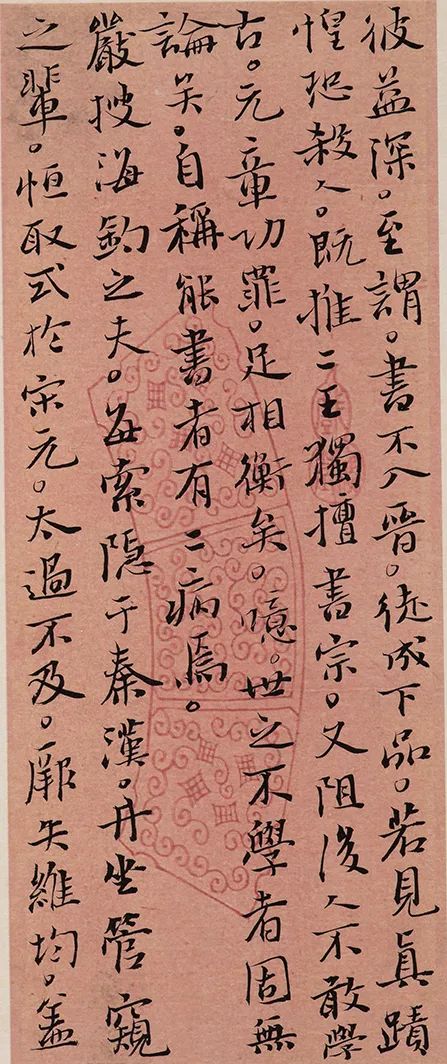 彼益深。至謂。書不入晉。徒成下品。若見真蹟
惶恐殺人。既推二王獨擅書宗。又阻後人不敢學
古。元章功罪。足相衡矣。噫。世之不學者固無
論矣。自稱能書者有二病焉。
巖搜海釣之夫。每索隱于秦漢。井坐管窺
之輩。恒取式於宋元。太過不及。厥失維均。蓋